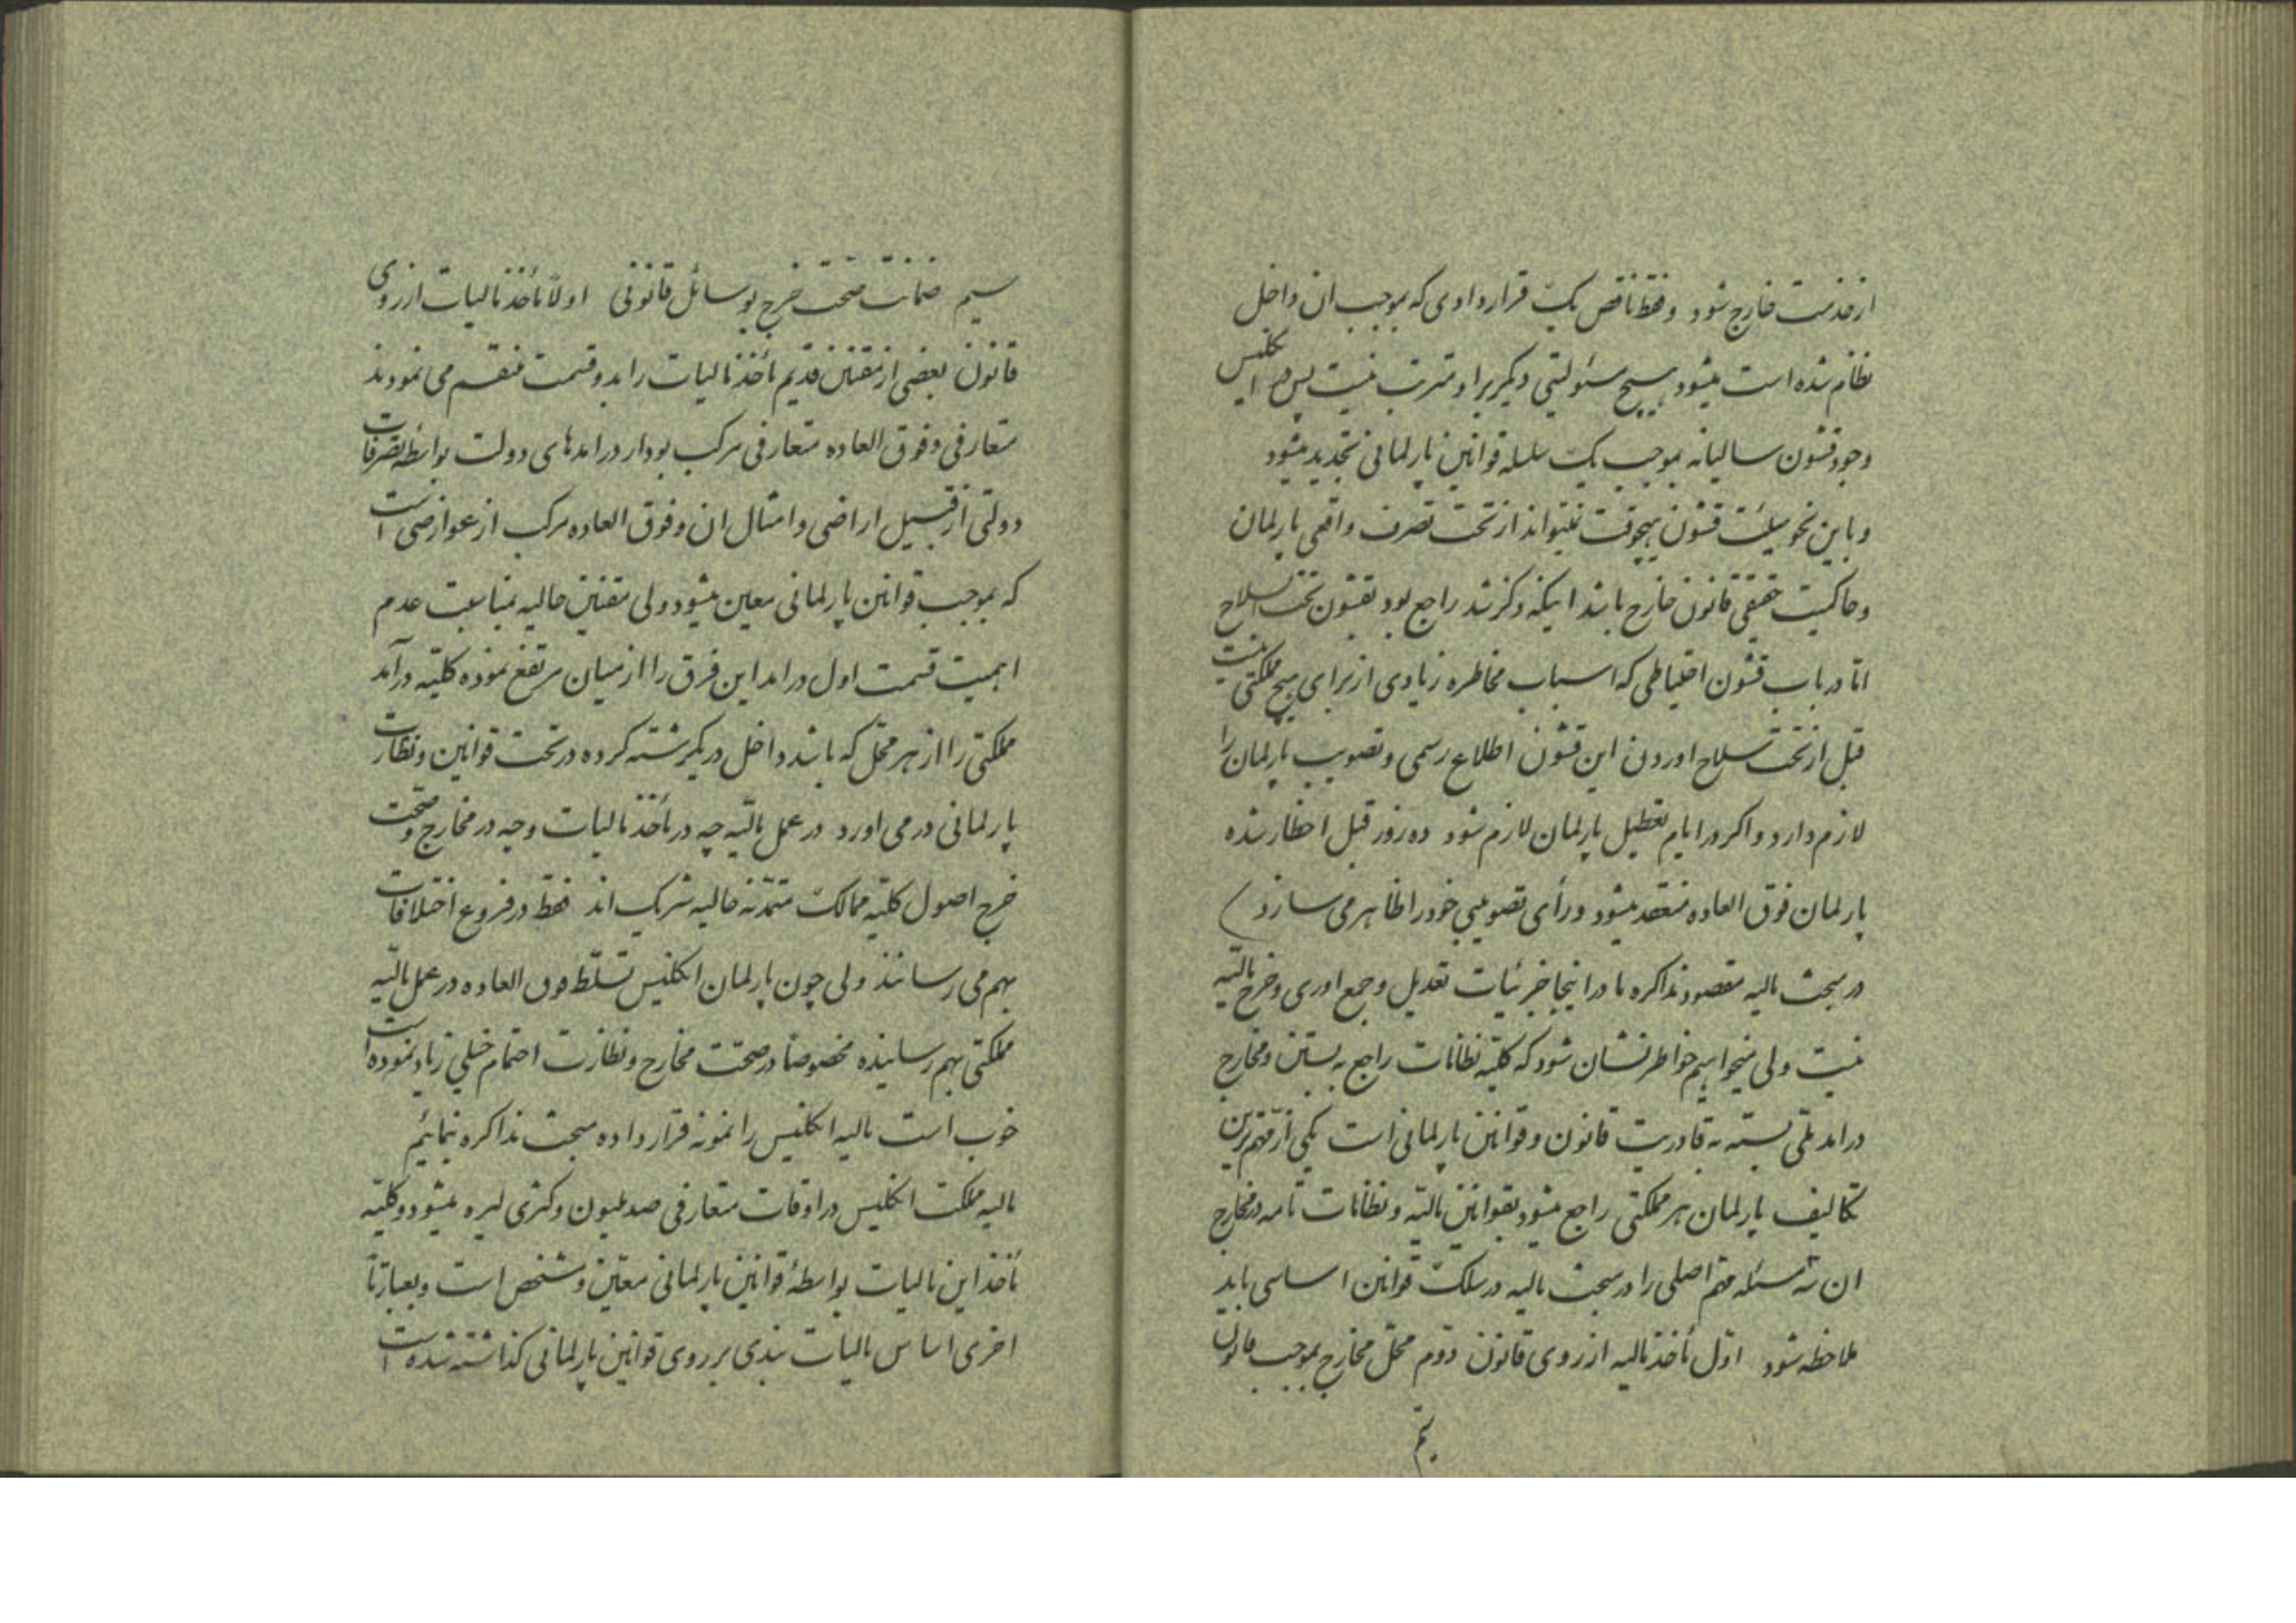 از خدمت خارج شود و فقط ناقض یک قراردادی که بموجب ان داخل
نظام شده است میشود هیچ مسئولیتی دیگر براو مترتب نیست پس در انگلیس
وجود قشون سالیانه بموجب یک سلسله قوانین پارلمانی تجدید میشود
و باین نحو هیئت قشون هیچوقت نمیتواند از تحت تصرف واقعی پارلمان
و حاکمیت حقیقی قانون خارج باشد اینکه ذکر شد راجع بود بقشون تحت السلاح
امّا در باب قشون احتیاطی که اسباب مخاطره زیادی از برای هیچ مملکتی نیست
قبل از تحت سلاح اوردن این قشون اطلاع رسمی و تصویب پارلمان را
لازم دارد و اکر در ایام تعطیل پارلمان لازم شود ده روز قبل احظار شده
پارلمان فوق العاده منعقد میشود و رأی تصویبی خود را ظاهر می سازد)
در مبحث مالیه مقصود مذاکره ما در اینجا جزئیات تعدیل و جمع اوری و خرج مالیّه
نیست ولی میخواهیم خواطر نشان شود که کلیّه نظامات راجع به بستن و مخارج
درامد ملّی بسته به قادریت قانون و قوانین پارلمانی است یکی از مهم ترین
تکالیف پارلمان هر مملکتی راجع میشود بقوانین مالیّه و نظامات تامه در مخارج
ان سه مسئله مهم اصلی را در مبحث مالیه در سلک قوانین اساسی باید
ملاحظه شود اوّل مأخذ مالیه از روی قانون دوّم محلّ مخارج بموجب قانون
سیم ضمانت صحت خرج بوسائل قانونی اولاً مأخذ مالیات از روی
قانون بعضی از مقننین قدیم مأخذ مالیات را بدو قسمت منقسم می نمودند
متعارفی و فوق العاده متعارفی مرکب بود از درامدهای دولت بواسطه تصرفات
دولتی از قبیل اراضی و امثال ان و فوق العاده مرکب از عوارضی است
که بموجب قوانین پارلمانی معین میشود ولی مقننین حالیه بمناسبت عدم
اهمیت قسمت اول درامد این فرق را از میان مرتفع نموده کلیّه درآمد
مملکتی را از هر محلّ که باشد داخل در یکرشته کرده در تحت قوانین و نظارت
پارلمانی در می اورد در عمل مالیّه چه در مأخذ مالیات و چه در مخارج و صحّت
خرج اصول کلیّه ممالک متمدّنه حالیه شریک اند فقط در فروع اختلافات
بهم می رسانند ولی چون پارلمان انکلیس تسلّط فوق العاده در عمل مالیّه
مملکتی بهم رسانیده مخصوصاً در صحّت مخارج و نظارت اهتمام خیلی زیاد نموده است
خوب است مالیه انکلیس را نمونه قرار داده مبحث مذاکره نمائیم
مالیه مملکت انکلیس در اوقات متعارفی صد ملیون و کسری لیره میشود و کلیّه
مأخذ این مالیات بواسطهٔ قوانین پارلمانی معیّن و مشخص است و بعبارت
اخری اساس مالیات بندی بر روی قوانین پارلمانی کذاشته شده است